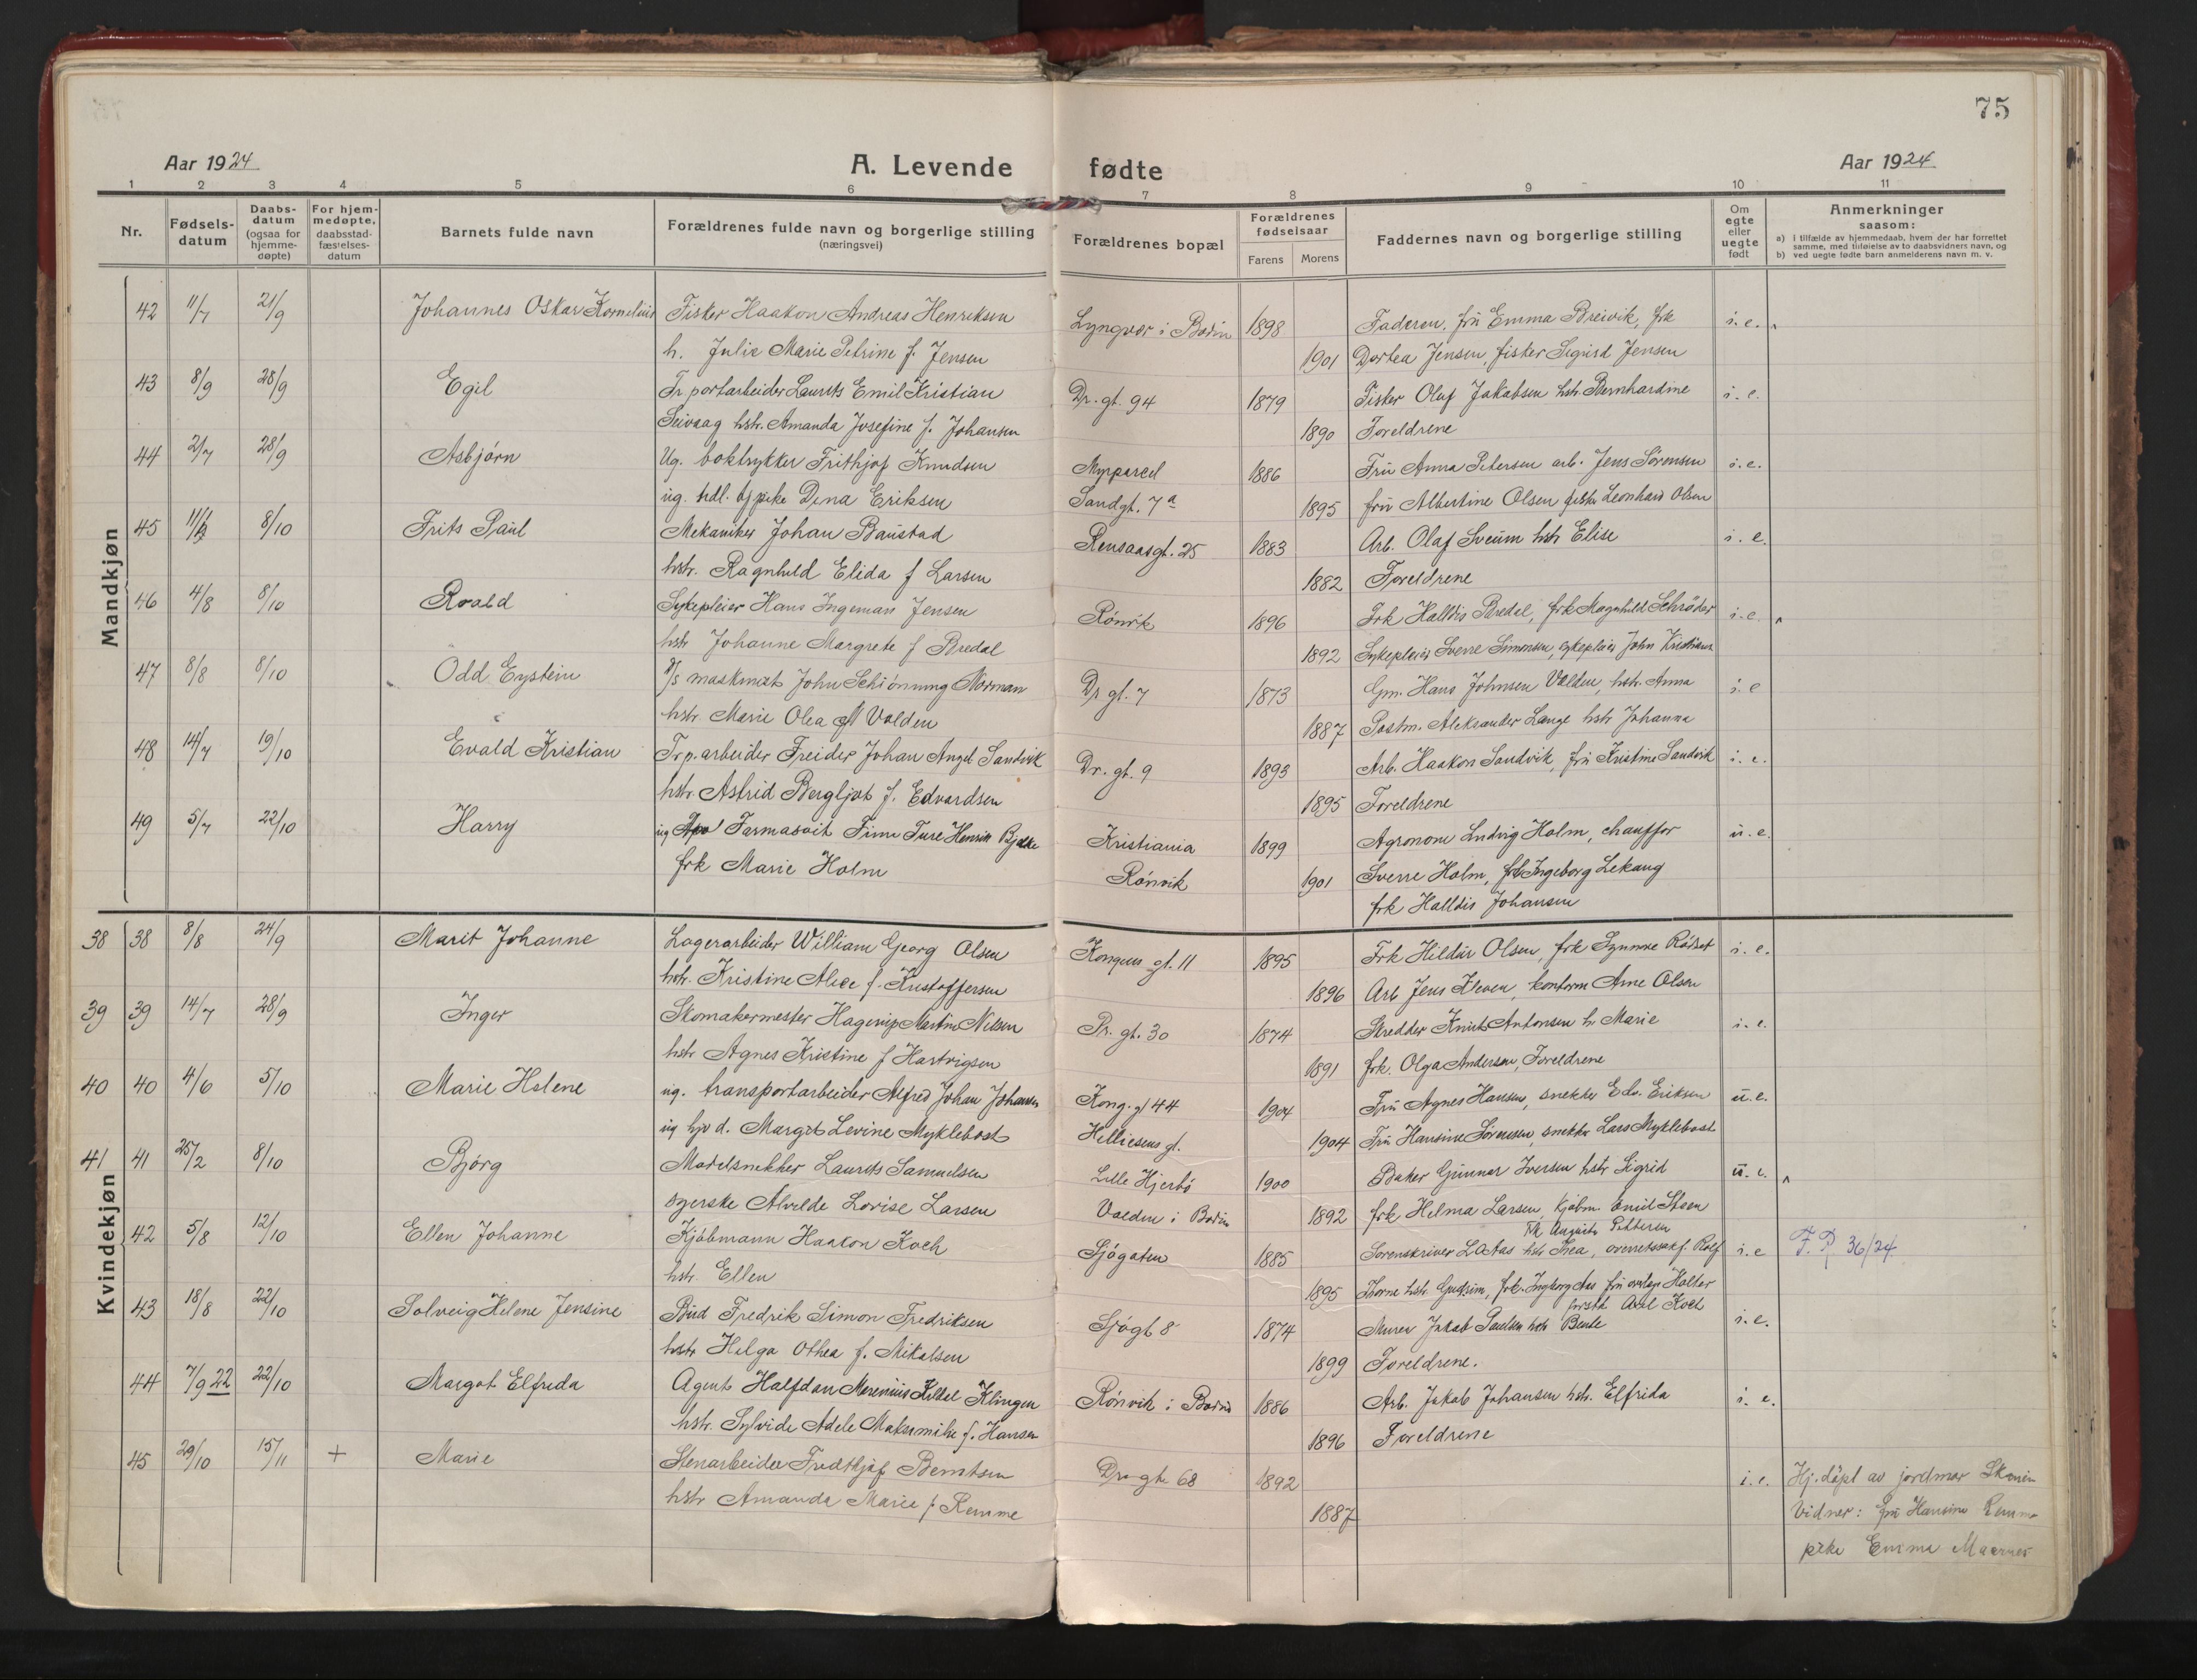 75
Aar 1924 A. Levende fødte Aar 1924
1 2 3 4 5 6 7 8 9 10 11
Nr. Fødsels-datum Daabs-datum (ogsaa for hjemme-døpte) For hjem-medøpte, daabsstad-fæstelses-datum Barnets fulde navn Forældrenes fulde navn og borgerlige stilling (næringsvei) Forældrenes bopæl Forældrenes fødselsaar Farens Morens Faddernes navn og borgerlige stilling Om egte eller uegte født Anmerkninger saasom: a) i tilfælde av hjemmedaab, hvem der har forrettet samme, med tilføielse av to daabsvidners navn, og b) ved uegte fødte barn anmelderens navn m. v.
Mandkjøn
42 11/7 21/9 Johannes Oskar Kornelius Fisker Haakon Andreas Henriksen Lyngvær i Bodin 1898 Faderen, frü Emma Breivik, frk i. e.
h. Julie Marie Petrine f. Jensen 1901 Dortea Jensen, fisker Sigurd Jensen
43 8/9 28/9 Egil Tr portarbeider Laurits Emil Kristian Dr. gt. 94 1879 Fisker Oluf Jakobsen hstr. Bernhardine i. e.
Seivaag hstr. Amanda Josefine f. Johansen 1890 Foreldrene
44 2/7 28/9 Asbjørn Ug. boktrykker Frithjof Knudsen Myrparcel 1886 Frü Anna Petersen arb. Jens Sörensen i. e.
ug. Dina Eriksen Sandgt. 7a 1895 frü Albertine Olsen fisker Leonhard Olsen
45 8/10 Frits Paul Mekaniker Johan Baustad Rensaasgt. 25 1883 Arb. Olaf Sveum hstr Elise i. e.
hstr. Ragnhild Elida f Larsen 1882 Foreldrene
46 4/8 8/10 Roald Sykepleier Hans Ingeman Jensen Rönvik 1896 Frk Halldis Bredal, frk Magnhild Schröder i. e.
hstr Johanne Margrete f Bredal 1892 Sykepleier Sverre Simonsen, sykepleier John Kristians
47 8/8 8/10 Odd Eystein D/s maskinist John Schiönning Norman Dr gt. 7 1873 Gm. Hans Johnsen Valden, hstr. Anna i. e
hstr. Marie Olea Valden 1887 Postm. Aleksander Lange hstr Johanna
48 14/7 19/10 Evald Kristian Trp. arbeider Freider Johan Angel Sandvik Dr. gt. 9 1893 Arb. Haakon Sandvik, frü Kristine Sandvik i. e.
hstr. Astrid Bergljot f. Edvardsen 1895 Foreldrene
49 5/7 22/10 Harry ug Farmasøit Ture Henrik Bjelke Kristiania 1899 Agronom Ludvig Holm, chauffør u. e.
frk Marie Holm Rönvik 1901 Sverre Holm, frk Ingeborg Lekang
frk Halldis Johansen
Kvindekjøn
38 38 8/8 24/9 Marit Johanne Lagerarbeider William Georg Olsen Kongens gt. 11 1895 Frk Hildur Olsen, frk Synnøve Rödset i. e.
hstr. Kristine Alice f. Kristoffersen 1896 Arb Jens Kleven, kontorm Arne Olsen
39 39 14/7 28/9 Inger Skomakermester Hagerup Martin Nilsen Pr. gt. 30 1874 Skredder Knut Antonsen h. Marie i. e.
hstr Agnes Kristine f Hartvigsen 1891 frk. Olga Andersen, Foreldrene
40 40 4/6 5/10 Marie Helene ug. transportarbeider Alfred Johan Johansen Kong. gt 44 1904 Frü Agnes Hansen, snekker Edv. Eriksen u. e.
ug hjv d. Margit Levine Myklebost Helliesens gt. 1904 Frü Hansine Sörensen, snekker Lars Myklebost
41 41 25/2 8/10 Bjørg Modelsnekker Laurits Samuelsen Lille Hjertö 1900 Baker Günnar Iversen hstr Sigrid u. e.
syerske Alvilde Lovise Larsen Valden i Bodin 1892 frk Helma Larsen, kjøbm. Emil Steen
42 5/8 12/10 Ellen Johanne Kjöbmann Haakon Koch Sjögaten 1885 Sorenskriver L Aas hstr Thea, overretssakf. Rolf i. e F. P. 36/24
frk Augusta Petersen
hstr. Ellen 1895 Thorne hstr. Gudrun, frk. Ingeborg Aas frü overlæge Holter
forstk Axel Koch
43 18/8 22/10 Solveig Helene Jensine Bud Fredrik Simon Fredriksen Sjögt 8 1874 Murer Jakob Paulsen hstr Berte i. e.
hstr Helga Othea f. Mikalsen 1899 Foreldrene.
44 7/9 22 22/10 Margot Elfrida Agent Halfdan Merenius Kildal Klingen Rönvik i Bodin 1886 Arb. Jakob Johansen hstr. Elfrida i. e.
hstr. Sylvide Adele Maksimilie f. Hansen 1896 Foreldrene
45 29/10 15/11 + Marie Stenarbeider Fredthjof Berntsen Dr. gt. 68 1892 i. e. Hj. döpt av jordmor
hstr Amanda Marie f Remme 1887 Vidner: frü Hansine Remme
pike Emma